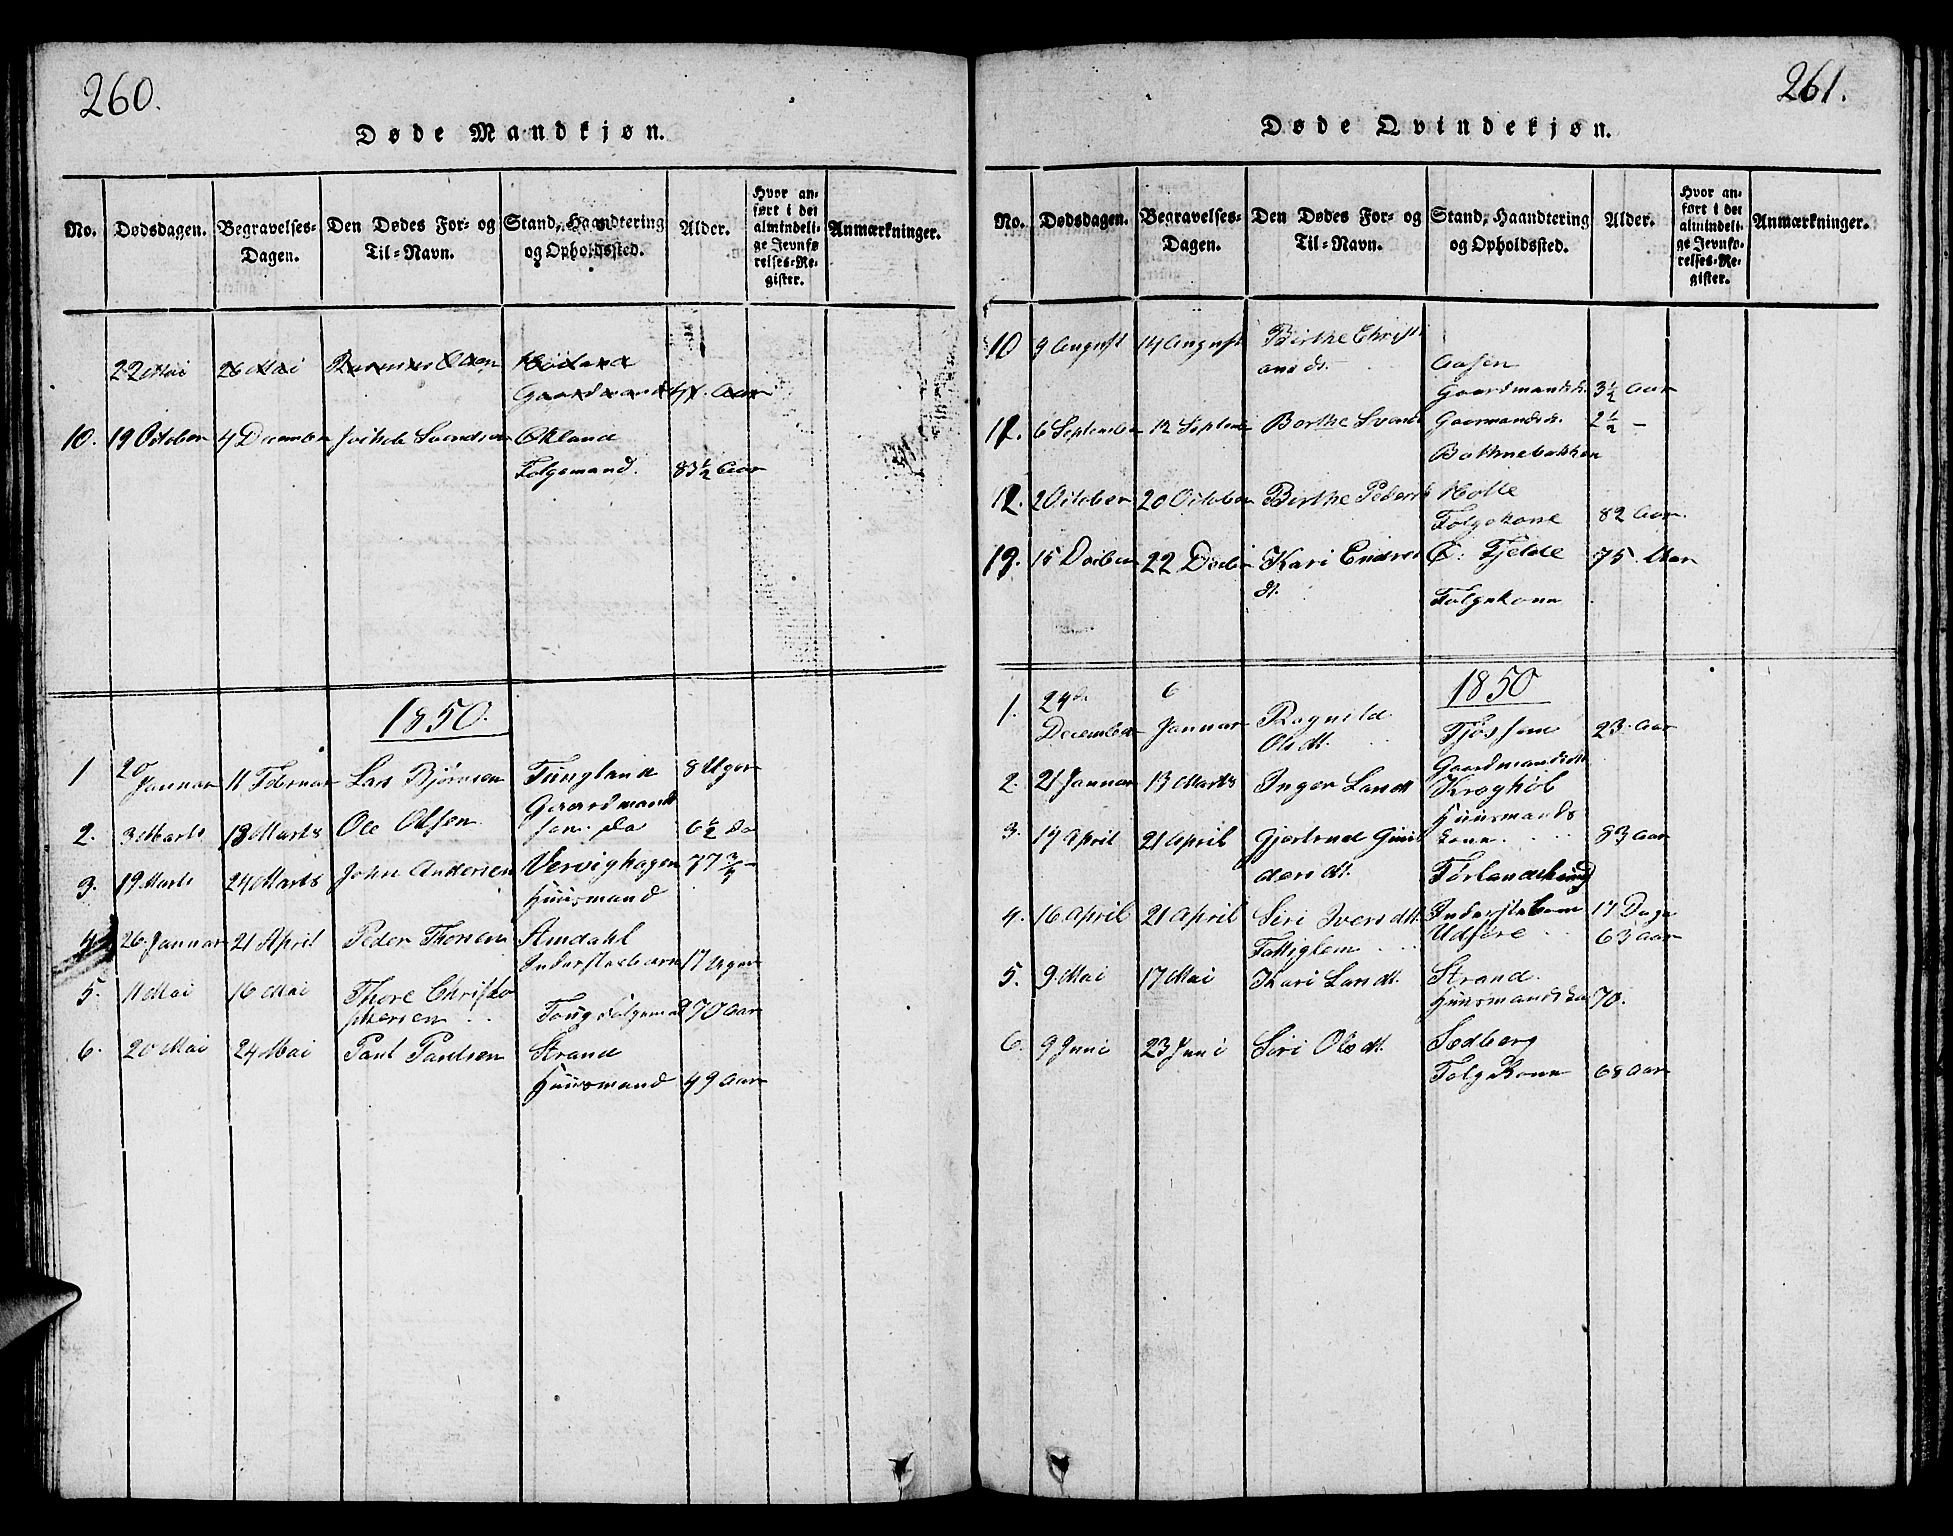 260.
Døde Mandkjøn.
No. Dødsdagen. Begravelses-Dagen. Den Dødes For- og Til-Navn. Stand, Haandtering og Opholdssted. Alder. Hvor anført i det almindelige Jevnførelses-Register. Anmærkninger.
22 Mai 26 Mai Rasmus Olsen
Gaardmand Aar
10. 19 October 4 December Svendsen Økland
Folgemand. 83½ Aar
1850.
1 20 Januar 11 Februar Lars Bjørnsen Tungland 8 Uger
Gaardmands
2. 3 Marts 13 Marts Ole Olsen søn. do 6½ do
3. 19 Marts 24 Marts John Andersen Vervighagen 77¾ –
Huusmand
4 26. Januar 21 April Peder Thorsen Amdahl
Inderstesbarn 17 Uger
5. 11 Mai 16 Mai Thore Christo
phersen Folgemand 70 Aar
6. 20 Mai 24 Mai Paul Paulsen Strand
Huusmand 49 Aar
261.
Døde Qvindekjøn.
No. Dødsdagen. Begravelses-Dagen. Den Dødes For- og Til-Navn. Stand, Haandtering og Opholdssted. Alder. Hvor anført i det almindelige Jevnførelses-Register. Anmærkninger.
10 9 August 14 August Birthe Christi
ansdt. Aasen
Gaardmandsk. 3½ Aar
11. 6 September 12 Septem Berthe Svends Gaarmandsdt. 2½ –
Bothnebakken
12. 2 October 20 October Birthe Pedersd Holte
Folgekone 82 Aar.
13. 15 Decbr 22 Decbr Kari Endres Ø. Fjelde 75. Aar
dt. Folgekone
1850
1. 24de December 6 Januar Ragnild Tjøssem 23. Aar
Olsdt. Gaardmandsdt
2. 21 Januar 13 Marts Inger Larsdt Kroghøl
Huusmands
kone. 83 Aar
3. 14 April 21 April Gjertrud Gun
dersdt. Førlandskoug
4. 16 April 21 April Siri Iversdt. Inderstebarn 17 Dage
Fattiglem Udføre 63 Aar
5. 9 Mai 17 Mai Kari Larsdt. Strand.
Huusmandsko 70.
6. 9 Juni 23 Juni Siri Olsdt. Sødberg
Folgekone 68 Aar